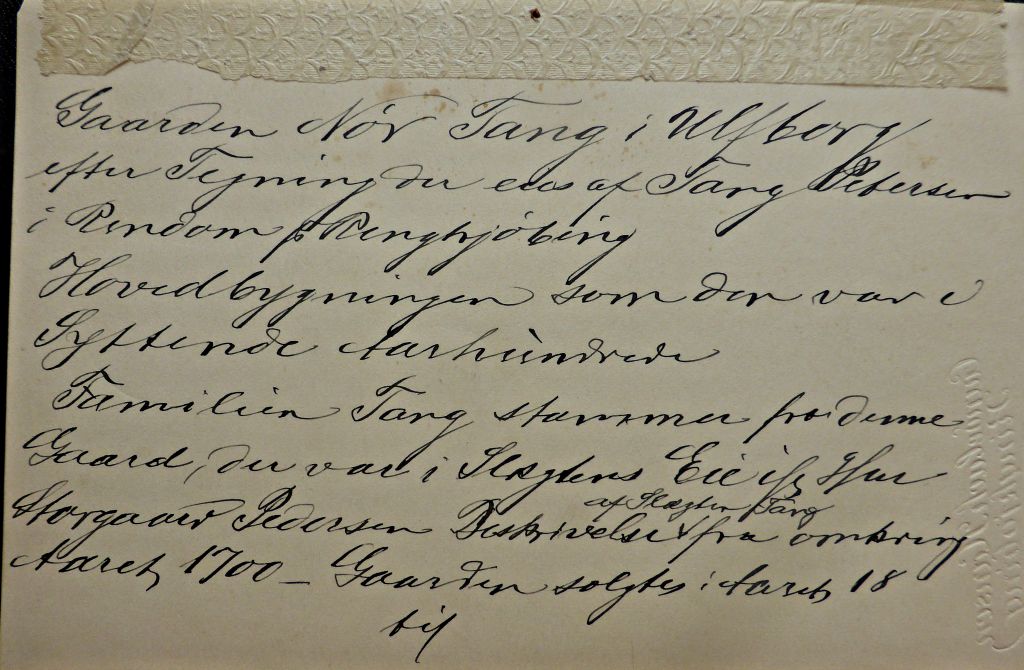 Gaarden Nør Tang i Ulfborg
efter Tegning der eies af Tang Petersen
i Rindom pr Ringkjøbing
Hovedbygningen som den var i
Syttende Aarhundrede
Familien Tang stammer fra denne
Gaard, der var i Slægtens Eie if
af Slægten Tang
Storgaard Pedersen Beskrivelse fra omkring
Aaret 1700 – Gaarden solgtes i Aaret 18
til